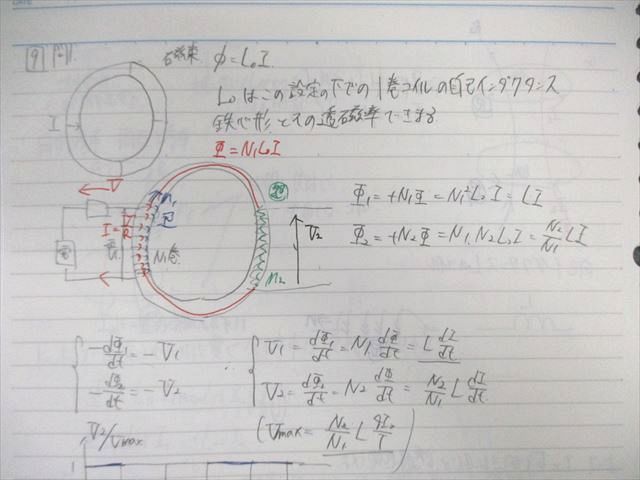 [9] P.11
石磁束 φ = L₀I
L₀はこの設定の下での1巻コイルの自己インダクタンス
鉄心形とその透磁率できまる
Φ = N₁L₀I
I
V
I = V/R
V₁
N₁巻
Φ
n₂
V₂
Φ₁ = +N₁Φ = N₁²L₀I = LI
Φ₂ = +N₂Φ = N₁N₂L₀I = N₂/N₁ LI
-dΦ₁/dt = -V₁
-dΦ₂/dt = -V₂
V₁ = dΦ₁/dt = N₁ dΦ/dt = L dI/dt
V₂ = dΦ₂/dt = N₂ dΦ/dt = N₂/N₁ L dI/dt
V₂/Vmax
(Vmax = N₂/N₁ L 9I₀/T)
1